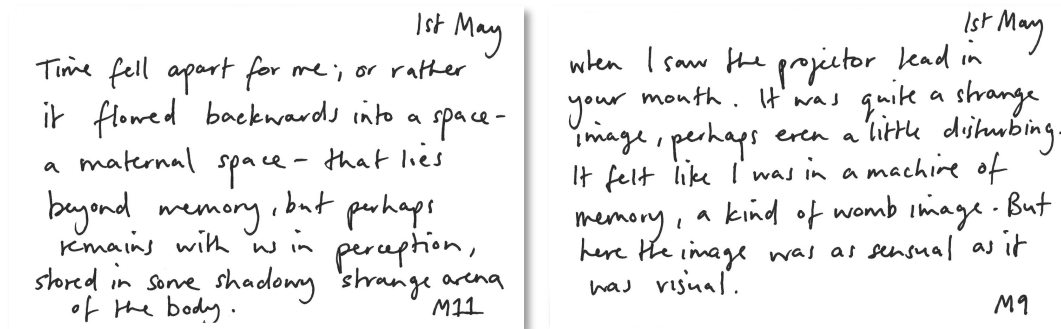 1st May
Time fell apart for me; or rather
it flowed backwards into a space –
a maternal space – that lies
beyond memory, but perhaps
remains with us in perception,
stored in some shadowy strange arena
of the body.
M11
1st May
when I saw the projector lead in
your mouth. It was quite a strange
image, perhaps even a little disturbing.
It felt like I was in a machine of
memory, a kind of womb image. But
here the image was as sensual as it
was visual.
M9